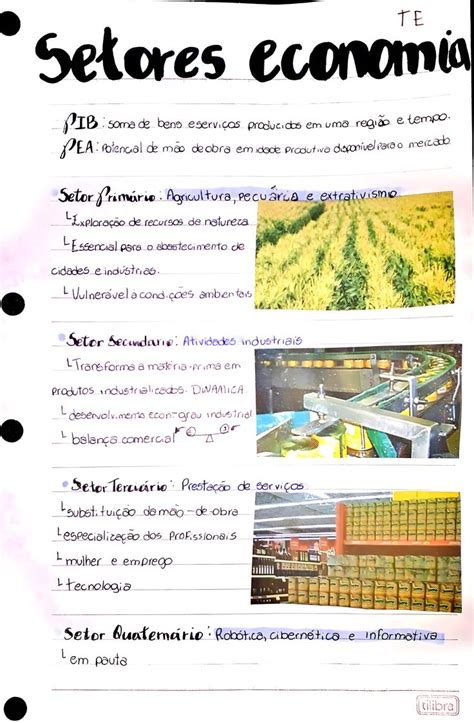 TE
Setores economia
PIB: soma de bens e serviços produzidos em uma região e tempo.
PEA: Potencial de mão de obra em idade produtiva disponível para o mercado
Setor Primário: Agricultura, pecuária e extrativismo
Exploração de recursos da natureza
Essencial para o abastecimento de
cidades e indústrias.
Vulnerável a condições ambientais
Setor Secundario: Atividades industriais
Transforma a matéria-prima em
produtos industrializados. DINÂMICA
desenvolvimento econ-grau industrial
balança comercial
Setor Terciário: Prestação de serviços
substituição da mão-de-obra
especialização dos profissionais
mulher e emprego
tecnologia
Setor Quaternário: Robótica, cibernética e informativa
em pauta
tilibra